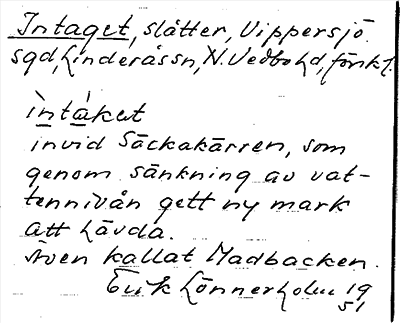 Intaget, slåtter, Vippersjö
sgd, Linderåssn, N. Vedbo hd, Jönk l.
ìntáket
invid Säckakärren, som
genom sänkning av vat-
tennivån gett ny mark
att hävda.
Även kallat Madbacken.
Erik Lönnerholm 19
51